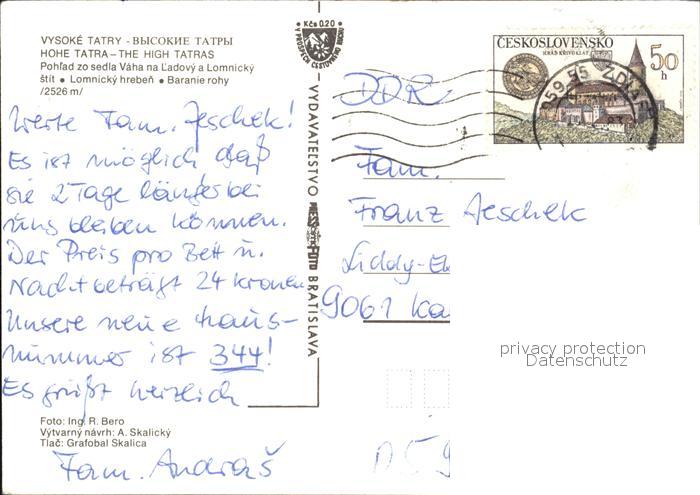 VYSOKÉ TATRY - ВЫСОКИЕ ТАТРЫ
HOHE TATRA - THE HIGH TATRAS
Pohľad zo sedla Váha na Ľadový a Lomnický
štít • Lomnický hrebeň • Baranie rohy
/2526 m/
Werte Fam. Jeschek!
Es ist möglich daß
sie 2 Tage länger bei
uns bleiben können.
Der Preis pro Bett u.
Nacht beträgt 24 kronen
Unsere neue Haus-
nummer ist 344!
Es grüßt herzlich
Foto: Ing. R. Bero
Výtvarný návrh: A. Skalický
Tlač: Grafobal Skalica
Fam. Andraš
Kčs 0,20
V PROSPECH CESTOVNÉHO RUCHU
VYDAVATEĽSTVO
BRATISLAVA
ČESKOSLOVENSKO
HRAD KŘIVOKLÁT
50
h
DDR
Fam.
Franz Jeschek
Liddy-
9061 Ka
privacy protection
Datenschutz